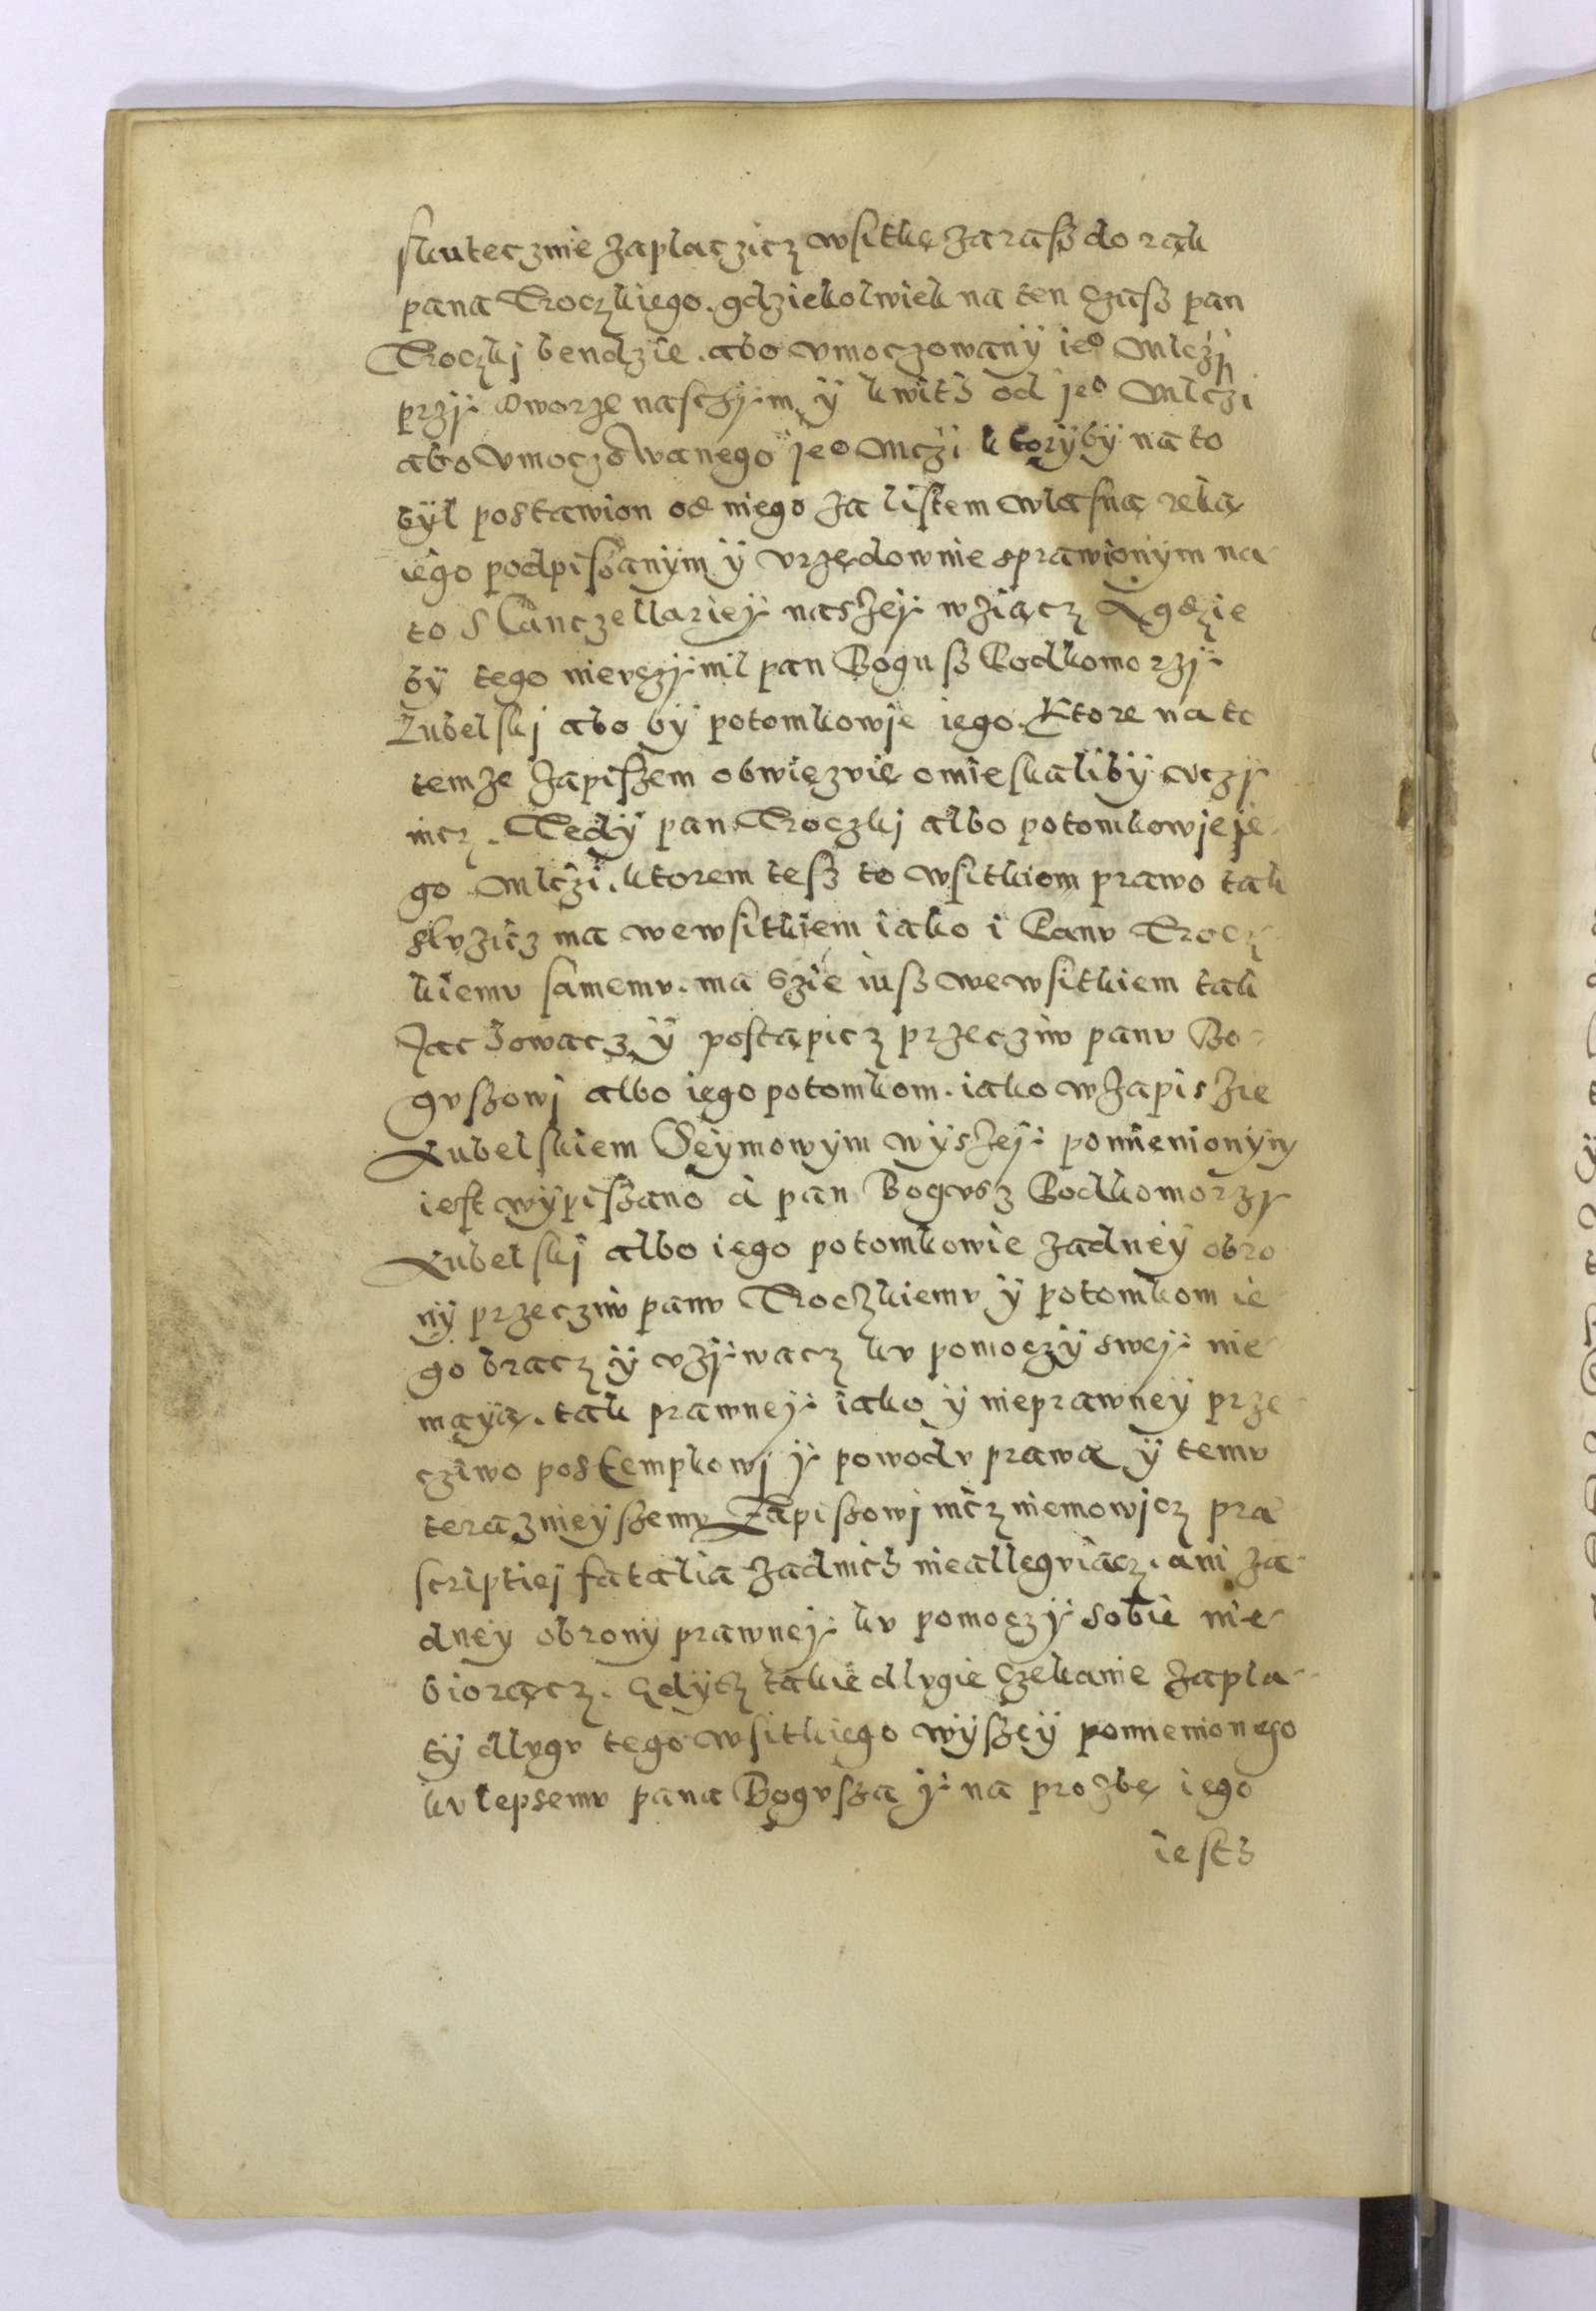 skutecznie zaplaczicz wsitkę zarasz do rąk
pana Troczkiego. gdziekolwiek na ten czasz pan
Troczkj bendzie. abo vmoczowanÿ ieo Mlczi
przÿ dworze naschÿm ÿ kwith od jeo Mlczi
abo vmoczowanego jeo Mczi ktorÿbÿ na to
bÿl postawion od niego za listem wlasną ręką
iego podpiszanÿm ÿ vrzędownie sprawionÿm na
to s Canczellarieÿ naszeÿ wziącz A gdzie
bÿ tego nievczÿnil pan Bogusz Podkomorzÿ
Lubelskj abo bÿ potomkowje iego. Ktore na to
temze zapiszem obwięzvię omieskalibÿ vczÿ
nicz. Tedÿ pan Troczkj albo potomkowje je
go Mlczi. ktorem tesz to wsitkiom prawo tak
slvzicz ma wewsitkiem iako i Panv Trocz
kiemv samemv. ma szie iusz wewsitkiem tak
zachowacz ÿ postąpicz przecziw panv Bo
gvszowj albo iego potomkom. iako w zapiszie
Lubelskiem Seÿmowÿm wÿszeÿ pomienionÿm
iest wÿpiszano à pan Bogvsz Podkomorzÿ
Lubelskj albo iego potomkowie zadneÿ obro
nÿ przecziw panv Troczkiemv ÿ potomkom ie
go bracz ÿ vzÿwacz kv pomoczÿ sweÿ nie
maÿą. tak prawneÿ iako ÿ nieprawneÿ prze
cziwo postempkowj ÿ powodv prawa ÿ temv
teraznieÿszemv Zapiszowj nicz niemowjcz pra
scriptiej fatalia zadnich nieallegviącz. ani za
dneÿ obronÿ prawneÿ kv pomoczÿ sobie nie
biorącz. Gdÿcz takie dlvgie czekanie zapla
tÿ dlvgv tego wsitkiego wÿszeÿ pomienionego
kv lepsemv pana Bogvsza ÿ na prozbę iego
iesth